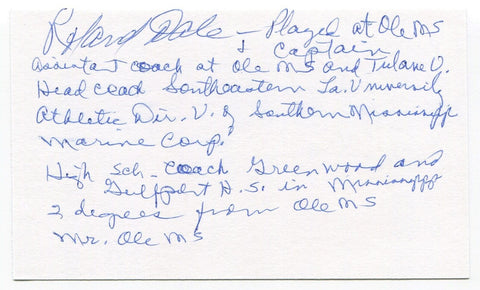 Roland Dale - Played at Ole MS
& Captain
Assistant coach at Ole MS and Tulane U.
Head coach Southeastern La. University
Athletic Dir. U. of Southern Mississippi
Marine Corp.
High Sch - coach Greenwood and
Gulfport H.S. in Mississippi
2 degrees from Ole MS
Mr. Ole MS